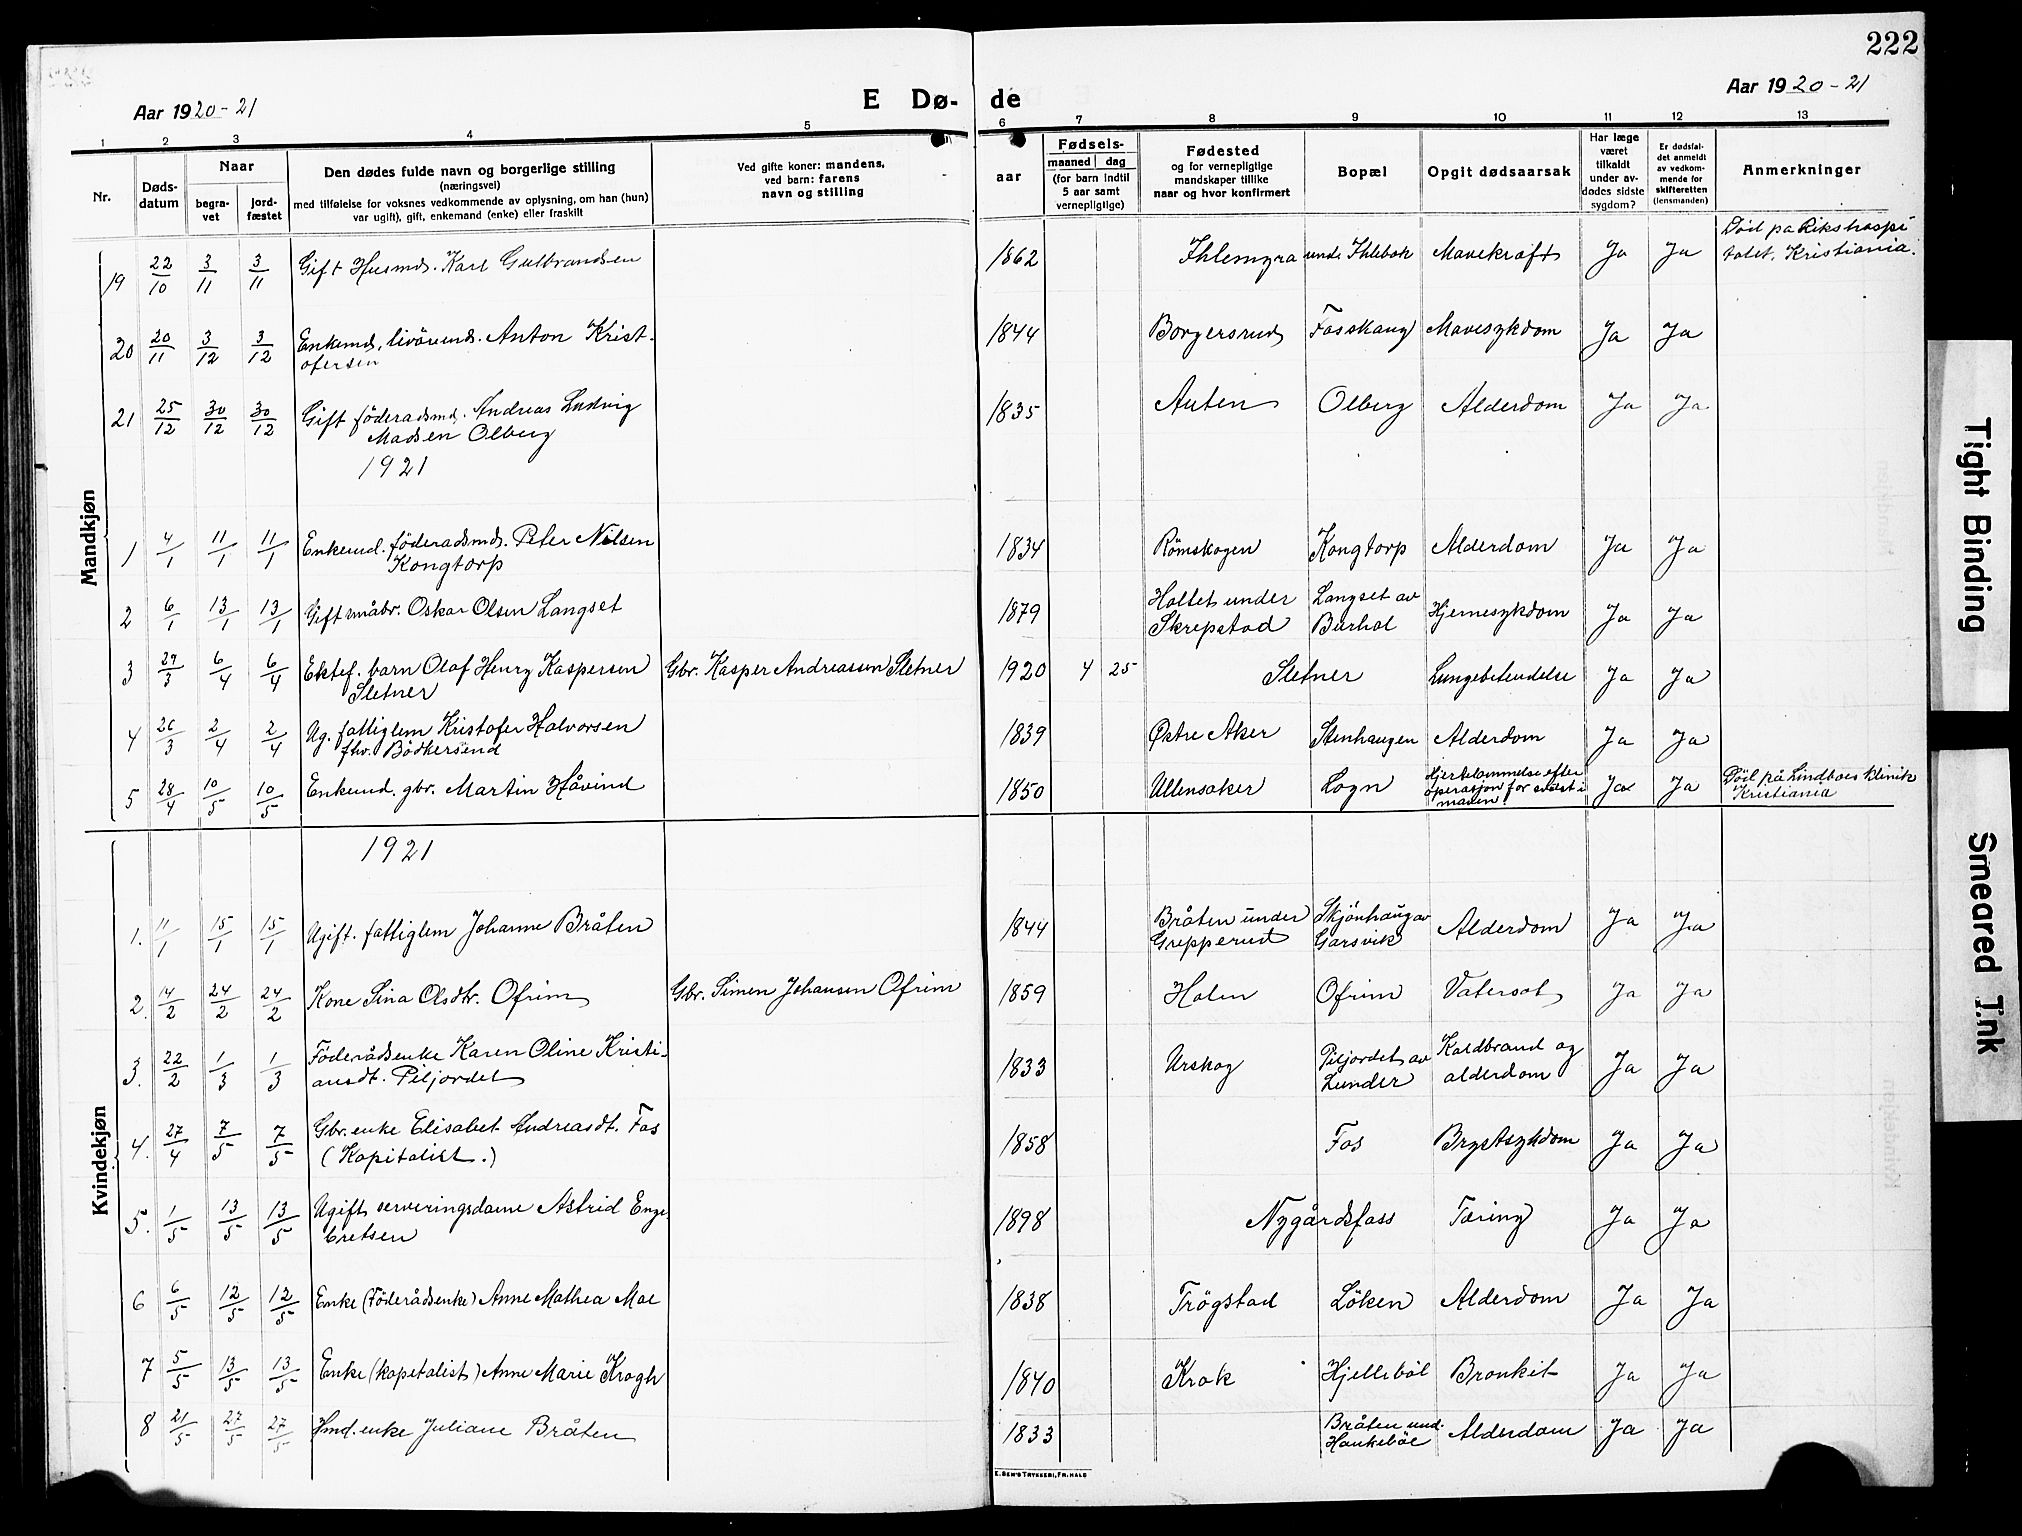 222
Aar 1920-21
E Dø-
de
Aar 1920-21
1 2 3 4 5 6 7 8 9 10 11 12 13
Nr.
Døds-
datum
Naar
begra-
vet
jord-
fæstet
Den dødes fulde navn og borgerlige stilling
(næringsvei)
med tilføielse for voksnes vedkommende av oplysning, om han (hun)
var ugift), gift, enkemand (enke) eller fraskilt
Ved gifte koner: mandens,
ved barn: farens
navn og stilling
aar
Fødsels-
maaned dag
(for barn indtil
5 aar samt
vernepligtige)
Fødested
og for vernepligtige
mandskaper tillike
naar og hvor konfirmert
Bopæl
Opgit dødsaarsak
Har læge
været
tilkaldt
under av-
dødes sidste
sygdom?
Er dødsfal-
det anmeldt
av vedkom-
mende for
skifteretten
(lensmanden)
Anmerkninger
Mandkjøn
19 22/10 3/11 3/11 Gift Husmd. Karl Gulbrandsen 1862 Ihlemyra unde. Ihlebæk Mavekræft Ja Ja Död pa Rikshospi
talet, Kristiania.
20 20/11 3/12 3/12 Enkemd, livörend. Anton Krist- 1844 Borgersrud Fosskaug Mavesykdom Ja Ja
ofersen
21 25/12 30/12 30/12 Gift föderadsmd. Andreas Ludvig 1835 Auten Olberg Alderdom Ja Ja
Madsen Olberg
1921
1 4/1 11/1 11/1 Enkemd. föderadsmd. Peter Nilsen 1834 Römskogen Kongtorp Alderdom Ja Ja
Kongtorp
2 6/1 13/1 13/1 Gift småbr. Oskar Olsen Langset 1879 Holtet under Langset av Hjernesykdom Ja Ja
Skrepstad Burhol
3 29/3 6/4 6/4 Ektef. barn Olaf Henry Kaspersen Gbr. Kasper Andreassen Sletner 1920 4 25 Sletner Lungebetendelse Ja Ja
Sletner
4 26/3 2/4 2/4 Ug. fattiglem Kristofer Halvorsen 1839 Østre Aker Stenhaugen Alderdom Ja Ja
fhv. Bödkersvend
5 28/4 10/5 10/5 Enkemd. gbr. Martin Håvind 1850 Ullensaker Sogn Hjertelammelse efter Ja Ja Död på Lindboes klinik
operasjon for svulst i Kristiania
maven.
Kvindekjøn
1921
1. 11/1 15/1 15/1 Ugift. fattiglem Johanne Bråten 1844 Bråten under Skjönhaug av Alderdom Ja Ja
Grepperud Garsvik
2. 14/2 24/2 24/2 Kone Sina Olsdtr. Ofrim Gbr. Simen Johansen Ofrim 1859 Holm Ofrim Vatersot Ja Ja
3. 22/2 1/3 1/3 Föderådsenke Karen Oline Kristi- 1833 Urskog Piljordet av Koldbrand og Ja Ja
ansdt. Piljordet Lunder alderdom
4. 27/4 7/5 7/5 Gbr. enke Elisabet Andreasdt. Fos 1858 Fos Brystsykdom Ja Ja
(Kapitalist.)
5. 1/5 13/5 13/5 Ugift serveringsdame Astrid Enge- 1898 Nygårdsfoss Tæring Ja Ja
bretsen
6 6/5 12/5 12/5 Enke (Föderådsenke) Anne Mathea Moe 1838 Trögstad Löken Alderdom Ja Ja
7 5/5 13/5 13/5 Enke (kapitalist) Anne Marie Krogh 1840 Krok Hjellebøl Bronkit Ja Ja
8 21/5 27/5 27/5 Hmd. enke Juliane Bråten 1833 Bråten und. Alderdom Ja Ja
Haukebøl
E. SEM'S TRYKKERI, FR.HALD
Tight Binding
Smeared Ink